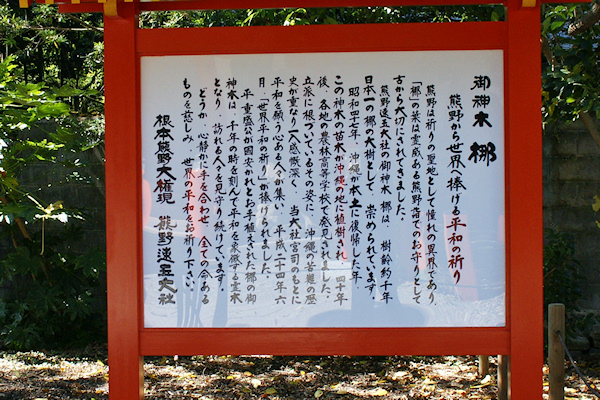 御神木 梛
熊野から世界へ捧ける平和の祈り
熊野は祈りの聖地として憧れの異界であり
「梛」の葉は霊威ある熊野詣でのお守りとして
古から大切にされてきました。
熊野速玉大社の御神木 梛は、樹齢約千年
日本一の梛の大樹として、崇められています。
昭和四七年、沖縄が本土に復帰した年
この神木の苗木が沖縄の地に植樹され、四十年
後、各地の農林高等学校で発見されました。
立派に根づいているその姿に、沖縄の苦難の歴
史が重なり一入感慨深く、当大社宮司のもとに
平和を願う心ある人々が集い、平成二十四年六
月「世界平和の祈り」が捧げられました。
平重盛公が国安かれとお手植えされた梛の御
神木は、千年の時を刻んで平和を象徴する霊木
となり、訪れる人々を見守り続けています。
どうか、心静かに手を合わせ、全ての命ある
ものを慈しみ、世界の平和をお祈り下さい。
根本熊野大権現 熊野速玉大社